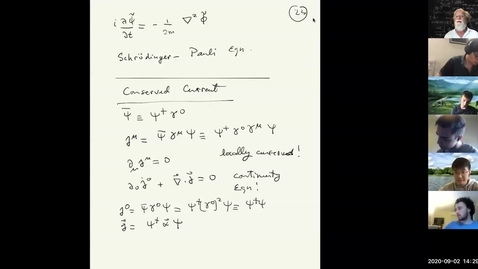 24
i ∂Ψ̃/∂t = - 1/2m ∇² Φ̃
Schrödinger - Pauli Eqn.
Conserved Current
Ψ̄ ≡ Ψ† γ⁰
j^μ = Ψ̄ γ^μ Ψ ≡ Ψ† γ⁰ γ^μ Ψ
∂_μ j^μ = 0 locally conserved!
∂₀ j⁰ + ∇⃗ · j⃗ = 0 continuity Eqn!
j⁰ = Ψ̄ γ⁰ Ψ = Ψ† [γ⁰]² Ψ ≡ Ψ†Ψ
j⃗ = Ψ† α⃗ Ψ
2020-09-02 14:29